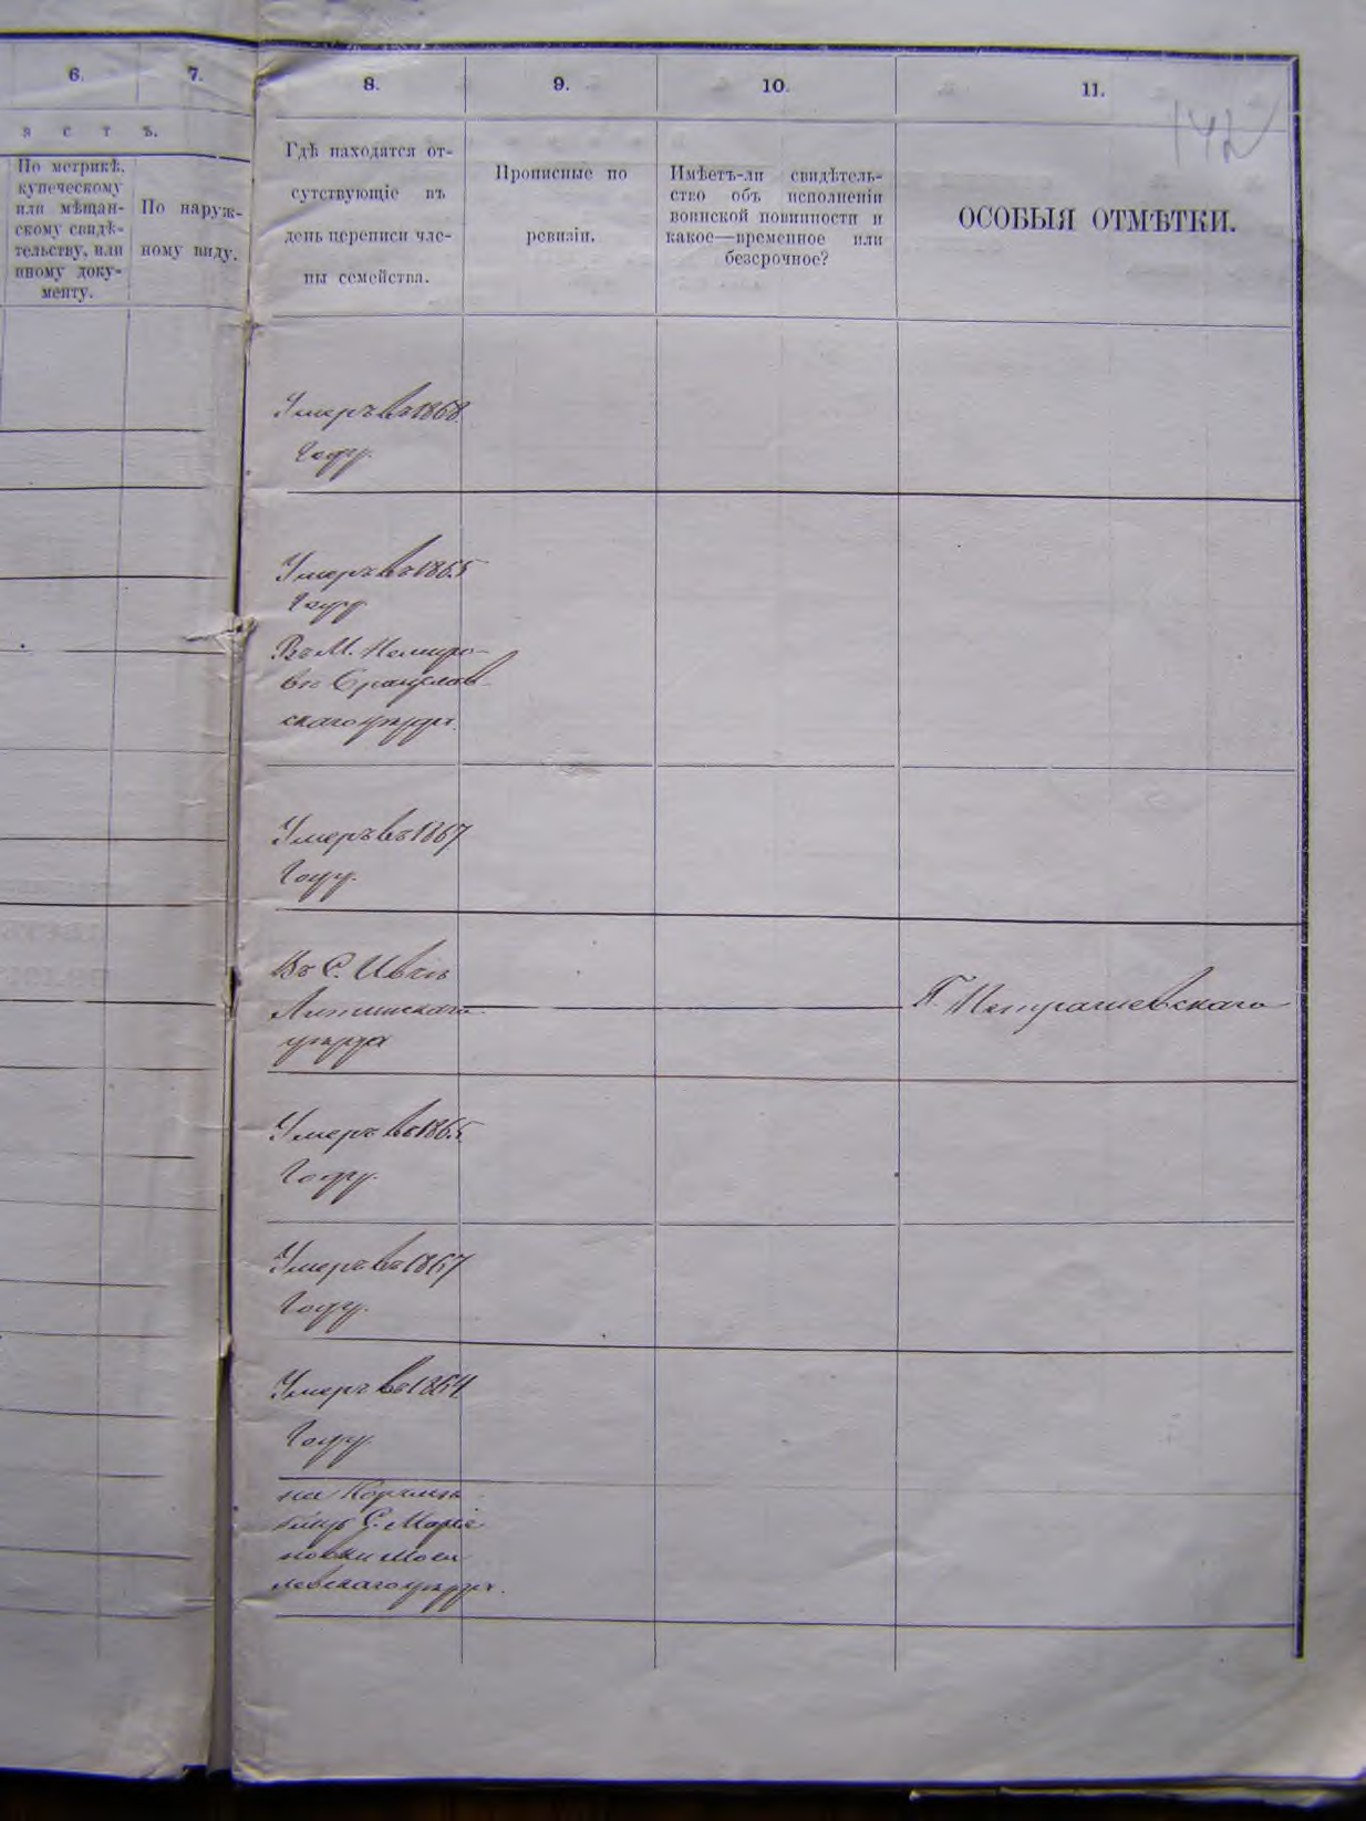 6.
7.
8.
9.
10.
11.
142
я с т ъ.
По метрикѣ,
купеческому
или мѣщан-
скому свидѣ-
тельству, или
иному доку-
менту.
По наруж-
ному виду.
Гдѣ находятся от-
сутствующіе въ
день переписи чле-
ны семейства.
Прописные по
ревизіи.
Имѣетъ-ли свидѣтель-
ство объ исполненіи
воинской повинности и
какое—временное или
безсрочное?
ОСОБЫЯ ОТМѢТКИ.
Умеръ въ 1868
году.
Умеръ въ 1865
году
Въ М. Немиро-
вѣ Брацлав-
скаго уѣзда.
Умеръ въ 1867
году.
Въ С. Ивчѣ
Литинскаго
уѣзда
Петрашевскаго
Умеръ въ 1865
году.
Умеръ въ 1867
году.
Умеръ въ 1864
году.
на
С. Маріе
новки Моги
левскаго уѣзда.